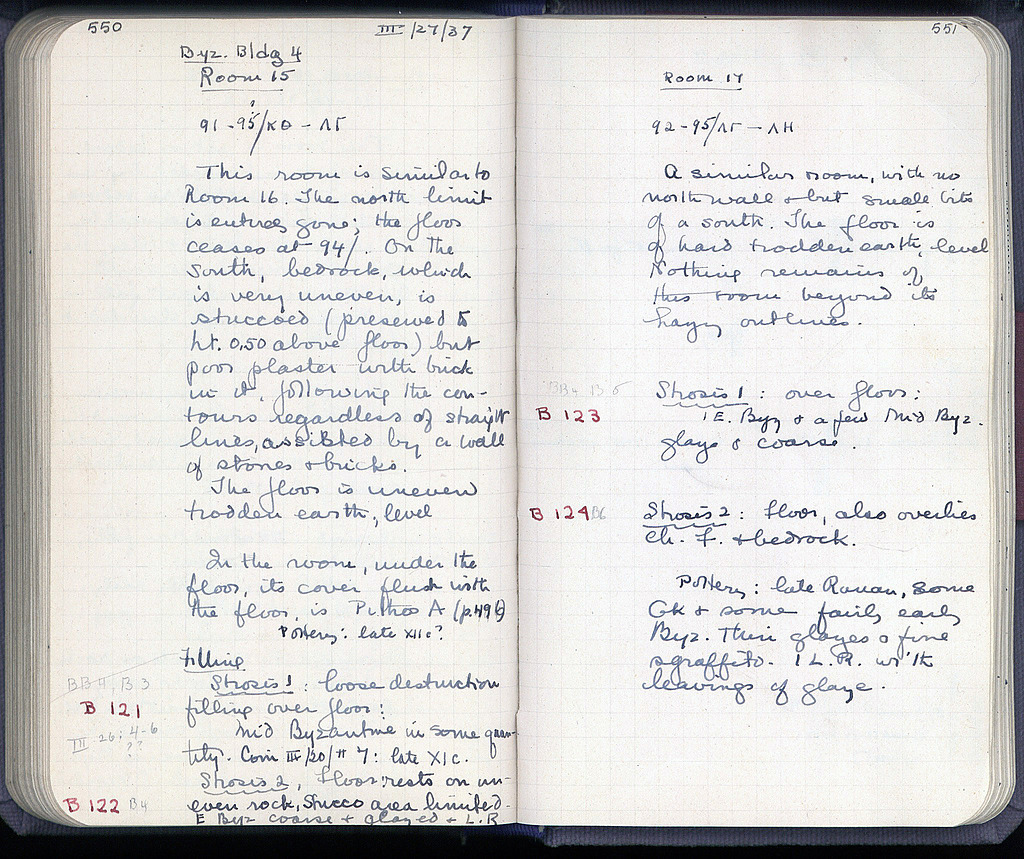 550
III/27/37
Byz. Bldg 4
Room 15
91-95/ΚΘ - ΛΓ
This room is similar to
Room 16. The north limit
is entirely gone; the floor
ceases at 94/. On the
south, bedrock, which
is very uneven, is
stuccoed (preserved to
ht. 0,50 above floor) but
poor plaster with brick
in it, following the con-
tours regardless of straight
lines, assisted by a wall
of stones & bricks.
The floor is uneven
trodden earth, level
In the room, under the
floor, its cover flush with
the floor, is Pithos A (p.496)
Pottery: late XII c?
Filling
Strosis 1: loose destruction
BB4, B3
B 121
filling over floor:
III 26: 4-6
??
Mid Byzantine in some quan-
tity. Coin III/20/# 7: late XI c.
Strosis 2, Floor: rests on un-
B 122 B4
even rock, Stucco area limited.
E Byz coarse & glazed & L.R
551
Room 17
92-95/ΛΓ - ΛΗ
A similar room, with no
north wall & but small bits
of a south. The floor is
of hard trodden earth, level
Nothing remains of
this room beyond its
hazy outlines.
BB4 B5
Strosis 1: over floor:
B 123
1 E. Byz & a few Mid Byz.
glaze & coarse.
B 124 B6
Strosis 2: floor, also overlies
Ch. F. & bedrock.
Pottery: late Roman, some
Gk & some fairly early
Byz. Thin glazes & fine
sgraffito. 1 L.R. with
leavings of glaze.